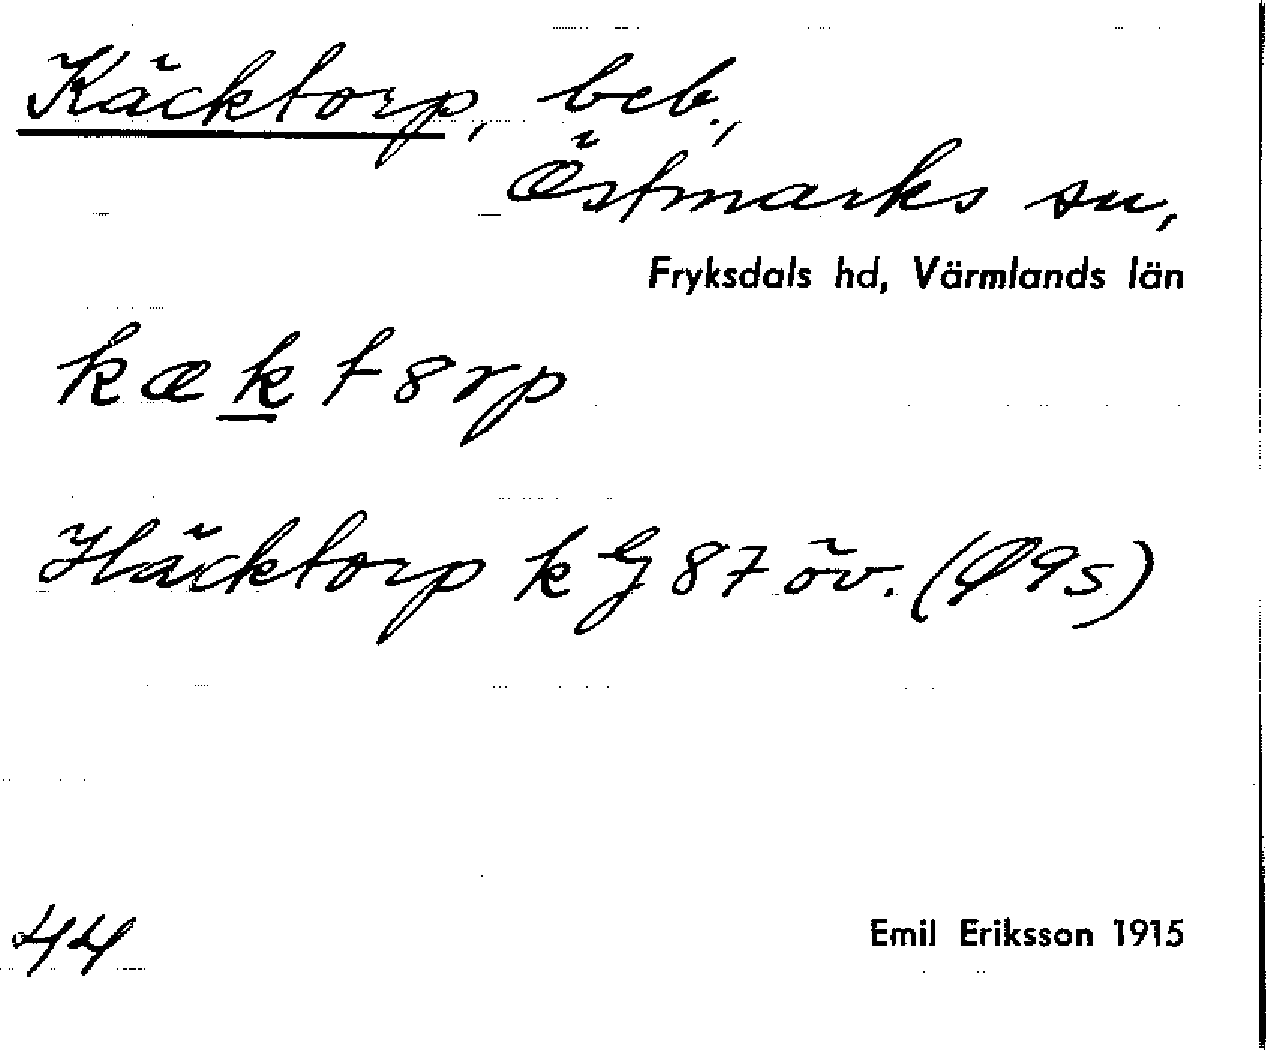 Käcktorp, beb.,
Östmarks sn,
Fryksdals hd, Värmlands län
kækt8rp
Häcktorp k G 87 öv. (Ø9s)
44
Emil Eriksson 1915